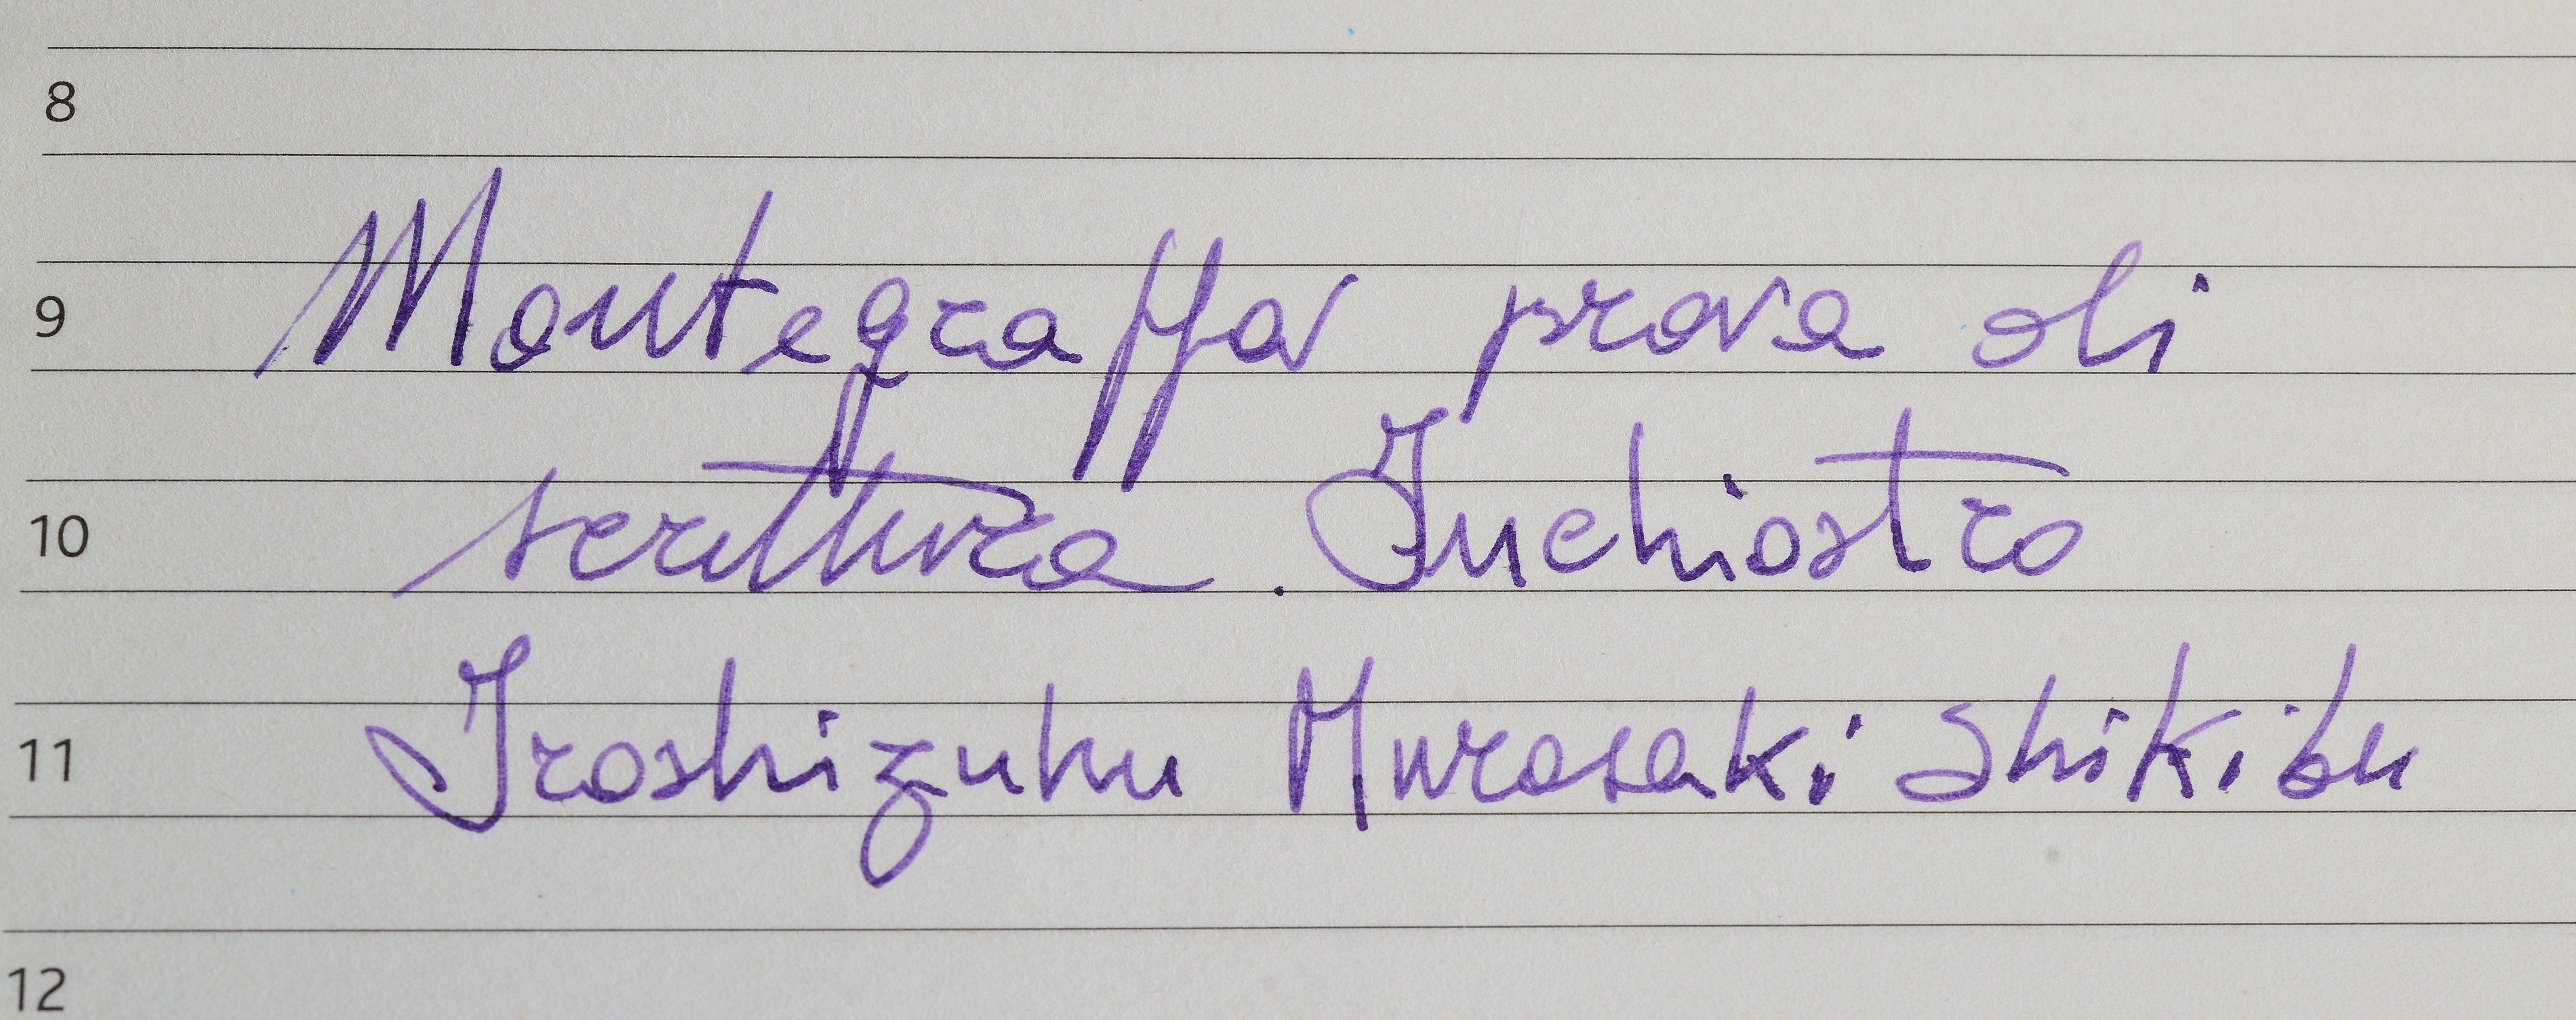 8
9 Montegrappa prova di
10 scrittura. Inchiostro
11 Iroshizuku Murasaki Shikibu
12